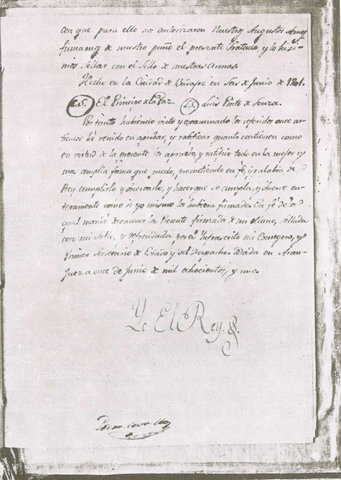 con que para ello no autorizaron Nuestros Augustos Amos
firmamos de nuestro puño el presente Tratado y lo hici-
mos Sellar con el Sello de nuestras Armas.
Hecho en la Ciudad de Badajoz en Seis de Junio de 1801.
L.S. El Principe de la Paz. L.S. Luis Pinto de Souza.
Por tanto habiendo visto y examinado los referidos once ar-
ticulos hé venido en aprobar, y ratificar quanto contienen como
en virtud de la presente los apruebo y ratifico todo en la mejor y
mas amplia forma que puedo, prometiendo en fé y palabra de
Rey cumplirlo y observarlo, y hacer que se cumpla, y observe en-
teramente como si yo mismo los hubiera firmado. En fé de lo
cual mandé despachar la presente firmada de mi Mano, Sellada
con mi Sello, y refrendada por el Infrascrito mi Consejero, y
Primer Secretario de Estado y del Despacho. Dada en Aran-
juez a once de Junio de mil ochocientos, y uno.
Yo El Rey.